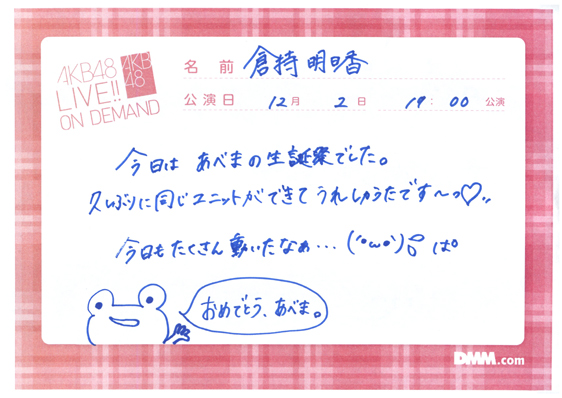 AKB48
LIVE!!
ON DEMAND
AKB
48
名前 倉持明日香
公演日 12月 2日 19:00 公演
今日は あべまの生誕祭でした。
久しぶりに同じユニットができて うれしかうたです〜っ♡!!
今日もたくさん動いたなぁ・・・(´・ω・`) ぱ。
おめでとう、あべま。
DMM.com